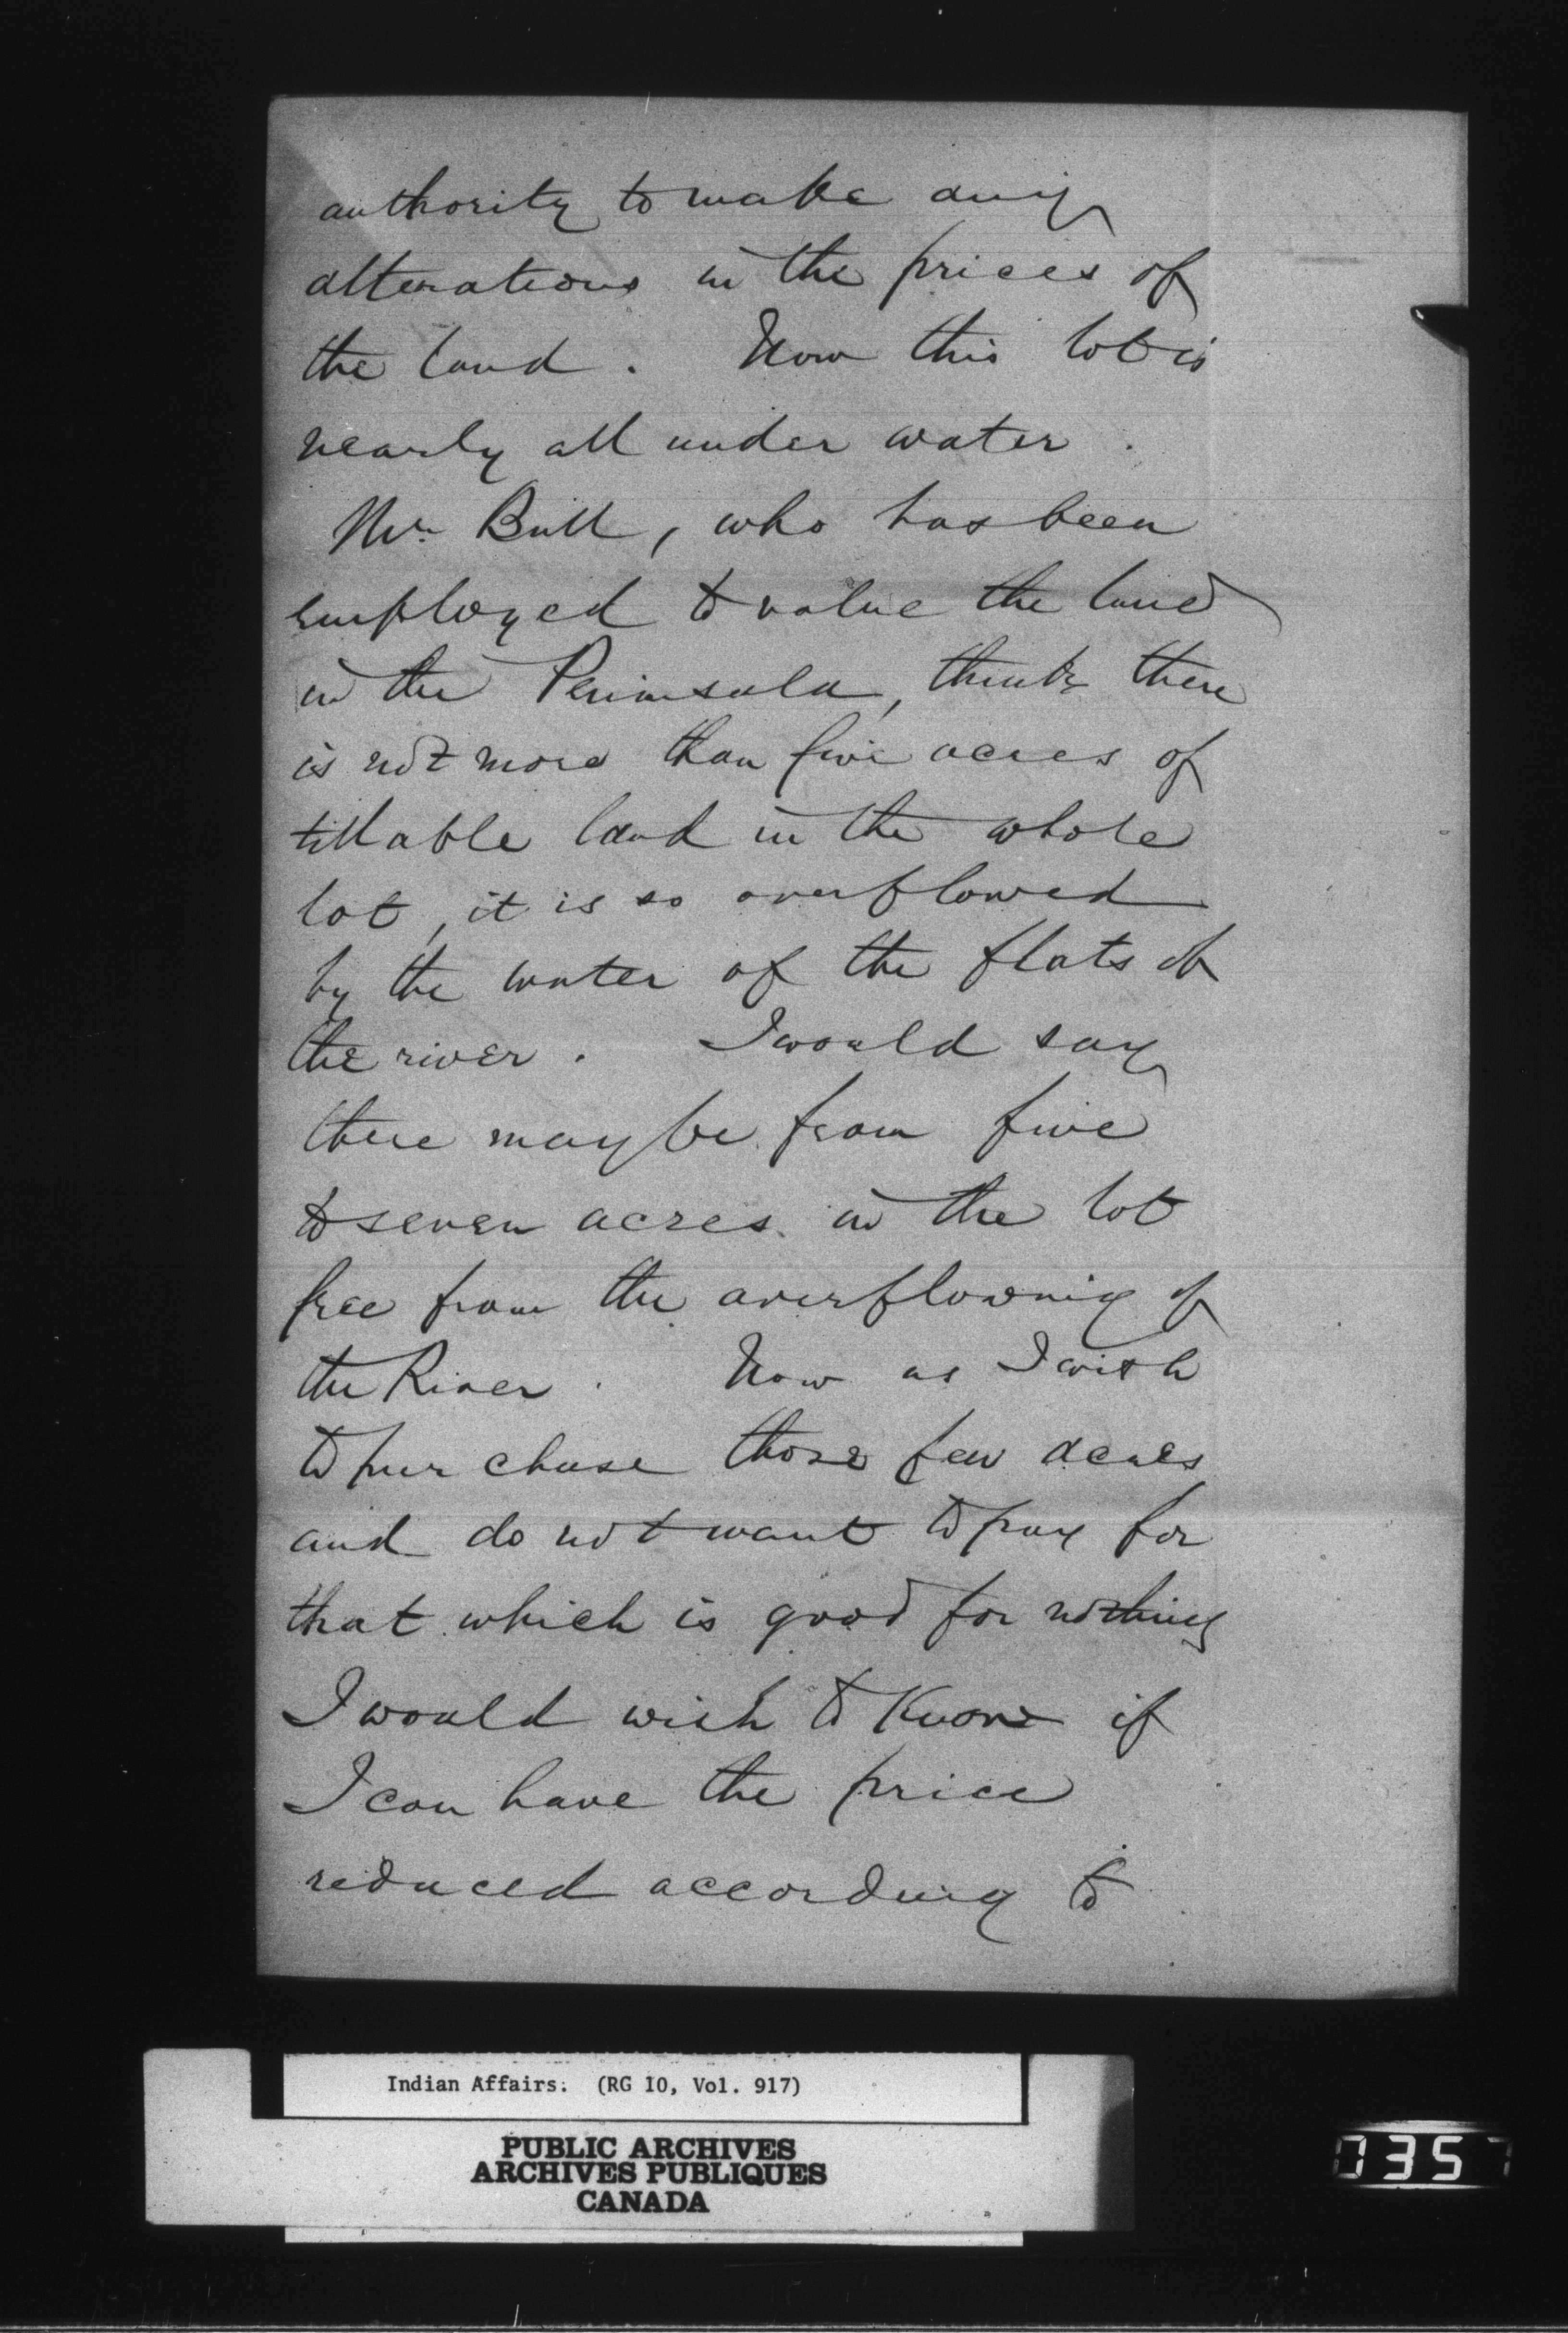 authority to make any
alterations in the prices of
the land. Now this lot is
nearly all under water.
Mr. Bull, who has been
employed to value the land
in the Peninsula, thinks there
is not more than five acres of
tillable land in the whole
lot, it is so overflowed
by the water of the flats of
the river. I would say
there may be from five
to seven acres in the lot
free from the overflowing of
the River. Now as I wish
to purchase those few acres
and do not want to pay for
that which is good for nothing
I would wish to know if
I can have the price
reduced according to
Indian Affairs. (RG 10, Vol. 917)
PUBLIC ARCHIVES
ARCHIVES PUBLIQUES
CANADA
0357